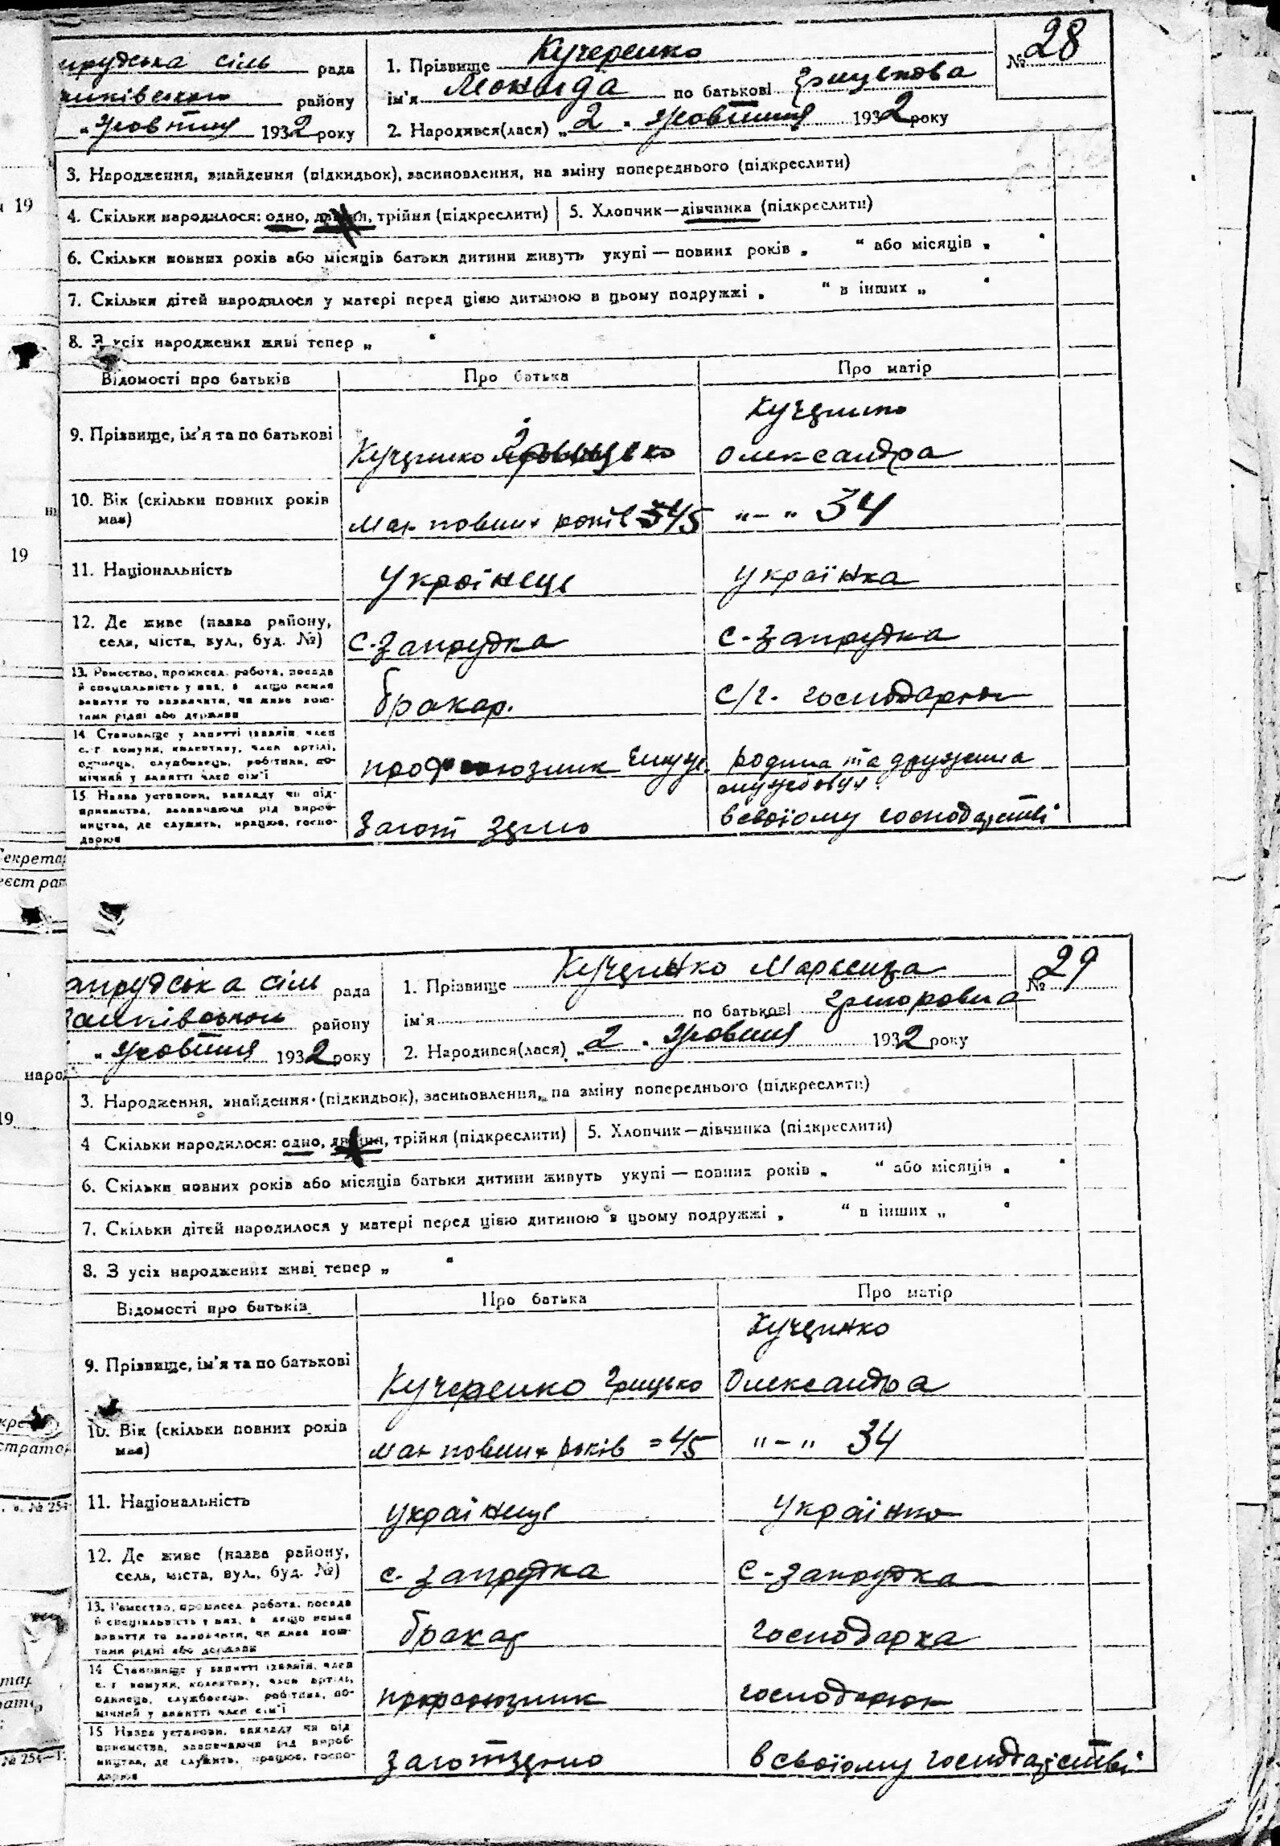 прудська сіль рада
1. Прізвище Кучеренко
№ 28
району
ім'я по батькові Грицькова
„ Жовтня 1932 року
2. Народився(лася) „ 2 „ Жовтня 1932 року
3. Народження, знайдення (підкидьок), засиновлення, на зміну попереднього (підкреслити)
4. Скільки народилося: одно, двійня, трійня (підкреслити)
5. Хлопчик—дівчинка (підкреслити)
6. Скільки повних років або місяців батьки дитини живуть укупі — повних років „ “ або місяців „ “
7. Скільки дітей народилося у матері перед цією дитиною в цьому подружжі „ “ в інших „ “
8. З усіх народжених живі тепер „ “
Відомості про батьків
Про батька
Про матір
9. Прізвище, ім'я та по батькові
Кученко
Кученко
Олександра
10. Вік (скільки повних років має)
має повних років 45
„ — „ 34
11. Національність
Українець
Українка
12. Де живе (назва району, села, міста, вул., буд. №)
с. Запрудка
с. Запрудка
13. Ремество, промисел, робота, посада й спеціальність у них, а якщо немає заняття то зазначити, чи живе коштами рідні або держави
бракар.
с/г. господарює
14 Становище у занятті (хазяїн, член с.-г комуни, колективу, член артілі, одинець, службовець, робітник, помічний у занятті член сім'ї
профсоюзник
родина та дружина
службовця
15 Назва установи, закладу чи підприємства, зазначаючи рід виробництва, де служить, працює, господарює
Загот зерно
в своїому господарстві
19
19
Секретар
реєстрат
апрудська сіль рада
1. Прізвище Кученко
№ 29
району
ім'я по батькові Григоровна
„ Жовтня 1932 року
2. Народився(лася) „ 2 „ Жовтня 1932 року
народ
3. Народження, знайдення (підкидьок), засиновлення, на зміну попереднього (підкреслити)
19
4 Скільки народилося: одно, двійня, трійня (підкреслити)
5. Хлопчик—дівчинка (підкреслити)
6. Скільки повних років або місяців батьки дитини живуть укупі — повних років „ “ або місяців „ “
7. Скільки дітей народилося у матері перед цією дитиною в цьому подружжі „ “ в інших „ “
8. З усіх народжених живі тепер „ “
Відомості про батьків
Про батька
Про матір
9. Прізвище, ім'я та по батькові
Кучеренко Грицько
Кученко
Олександра
10. Вік (скільки повних років має)
має повних років = 45
„ — „ 34
11. Національність
Українець
Українка
12. Де живе (назва району, села, міста, вул., буд. №)
с. Запрудка
с. Запрудка
13. Ремество, промисел, робота, посада й спеціальність у них, а якщо немає заняття то зазначити, чи живе коштами рідні або держави
бракар
господарка
14 Становище у занятті (хазяїн, член с.-г комуни, колективу, член артілі, одинець, службовець, робітник, помічний у занятті член сім'ї
профсоюзник
господарює
15 Назва установи, закладу чи підприємства, зазначаючи рід виробництва, де служить, працює, господарює
Заготзерно
в своїому господарстві